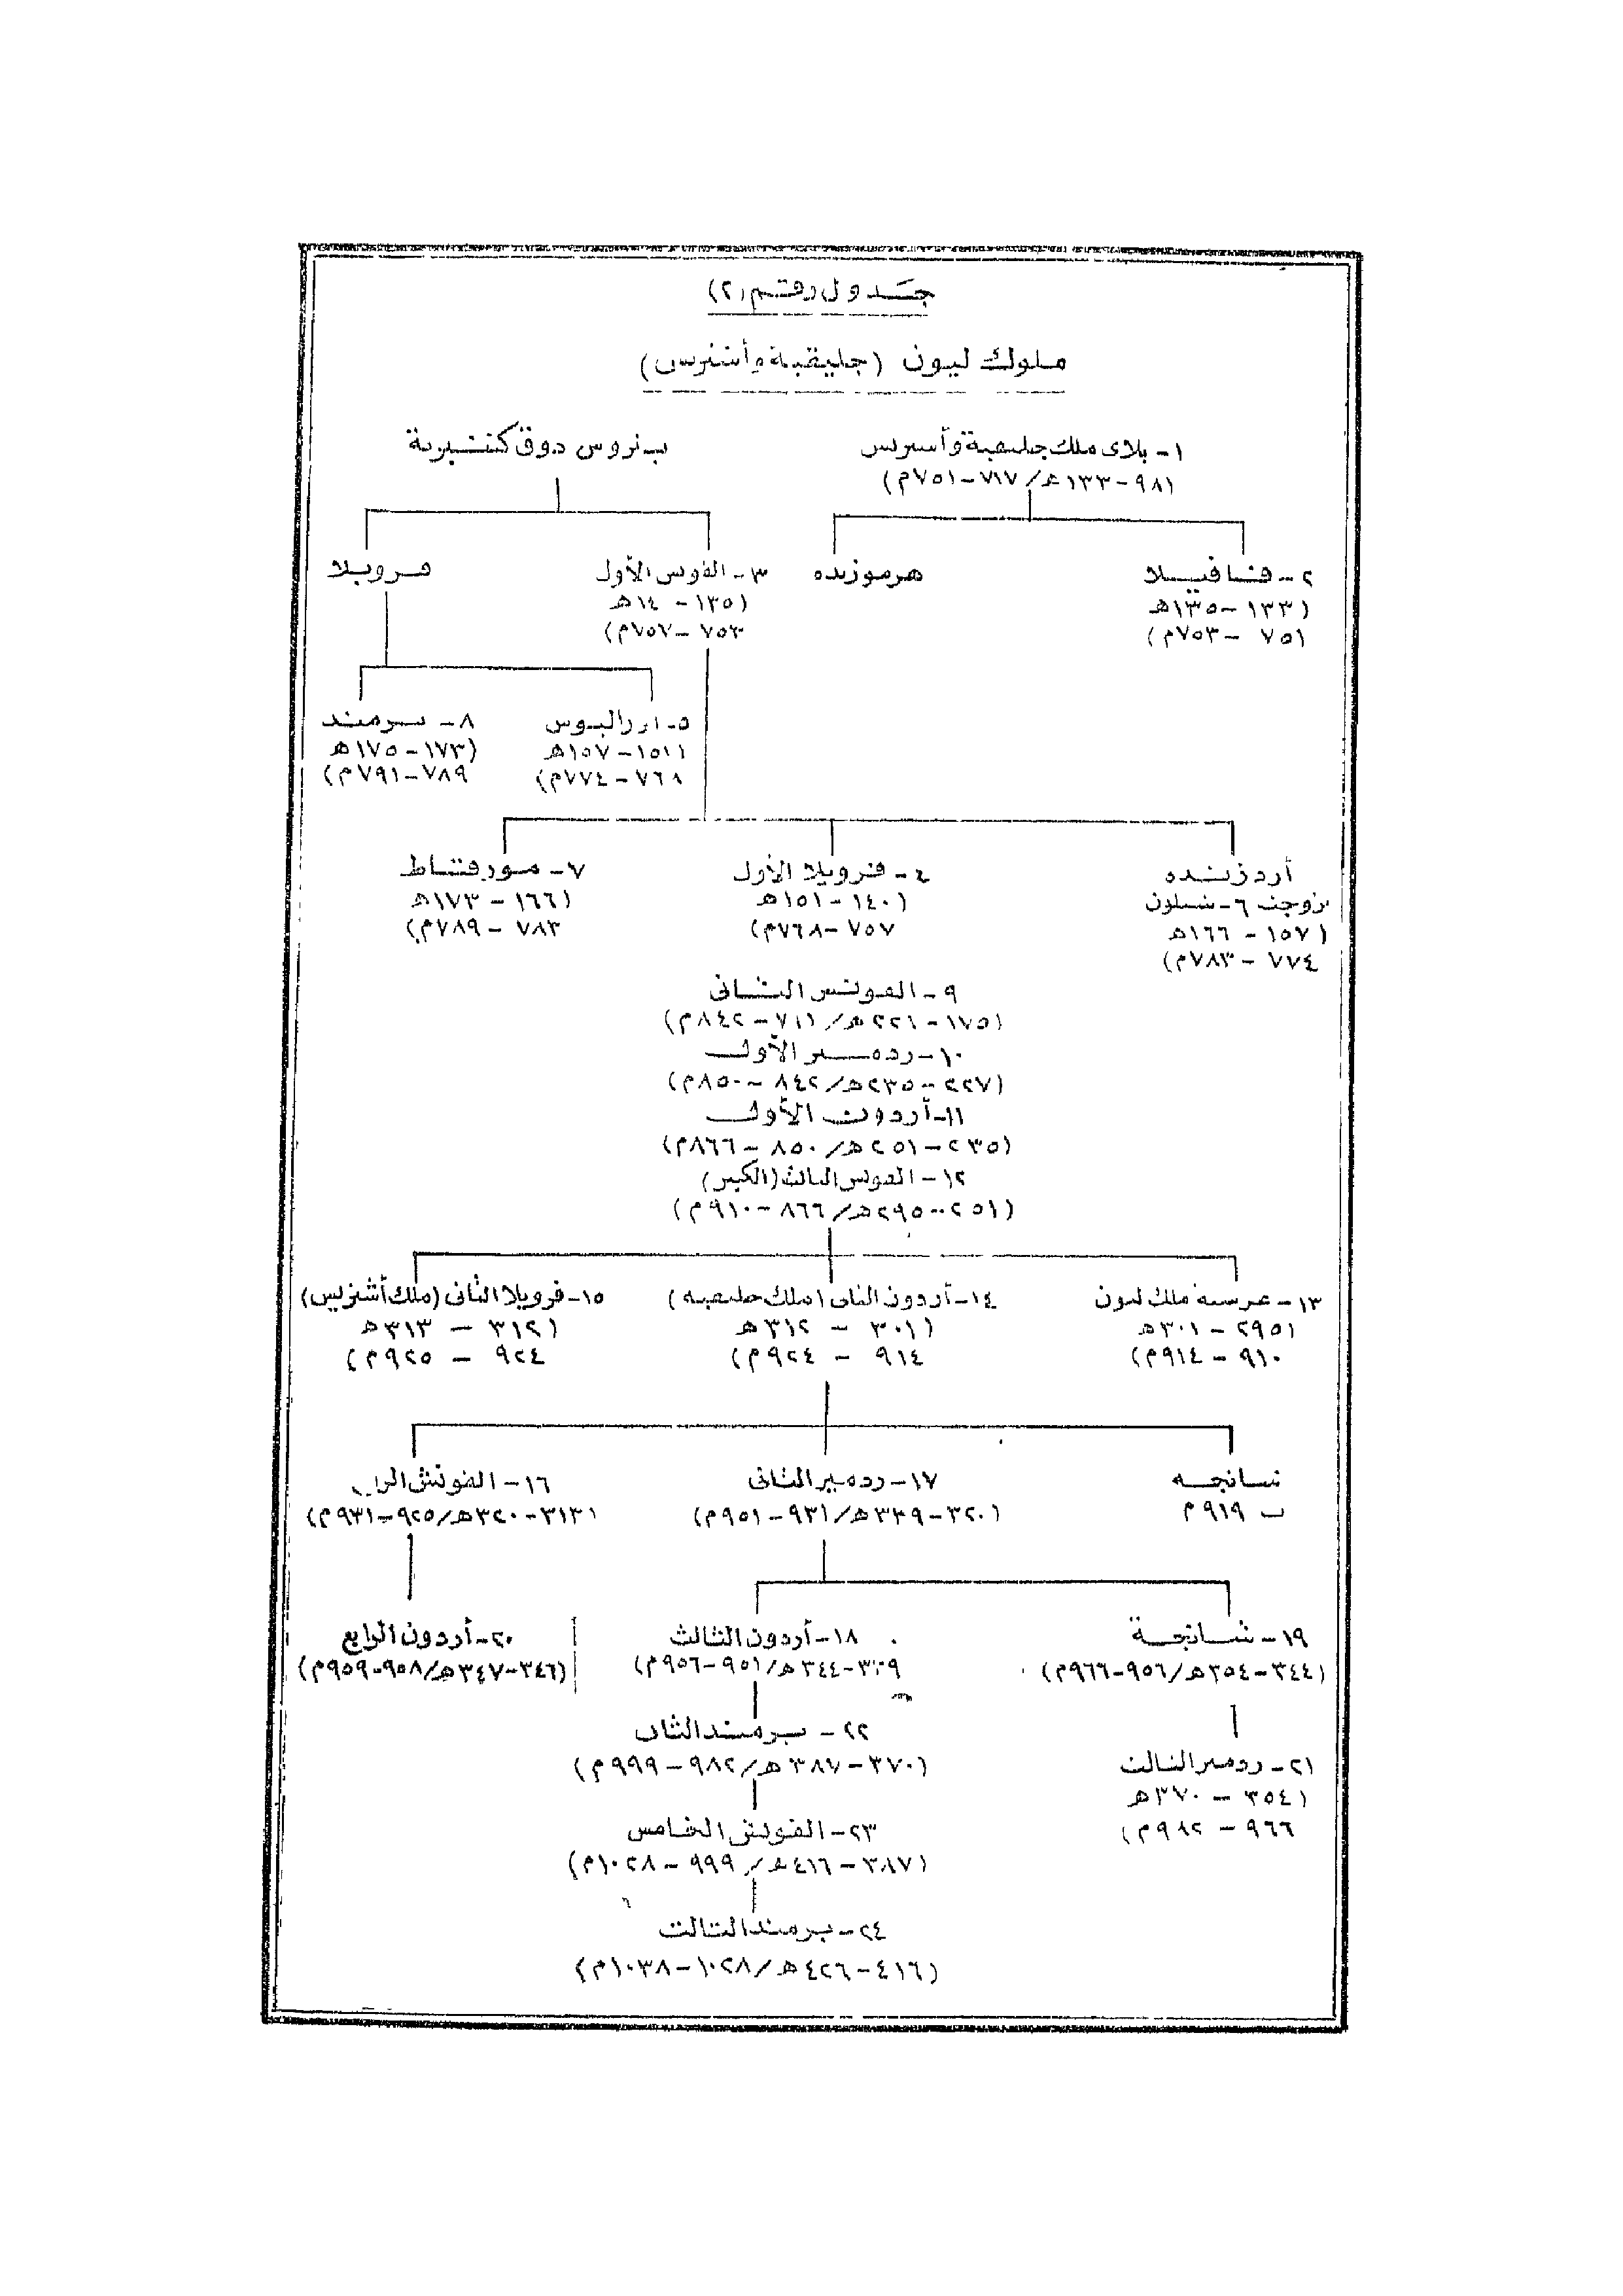 جدول رقم (٢)
ملوك ليون (جليقية وأشتريس)
١- بلاى ملك جليقية وأستريس
(٩٨-١٣٣هـ/٧١٧-٧٥١م)
بتروس دوق كنتبرية
٢- فافيلا
(١٣٣-١٣٥هـ
٧٥١-٧٥٣م)
هرموزنده
٣- الفونس الأول
(١٣٥-١٤٠هـ
٧٥٣-٧٥٧م)
فرويلا
٥- اورالبوس
(١٥١-١٥٧هـ
٧٦٨-٧٧٤م)
٨- برمند
(١٧٣-١٧٥هـ
٧٨٩-٧٩١م)
أردزنده
زوجت ٦- شلون
(١٥٧-١٦٦هـ
٧٧٤-٧٨٣م)
٤- فرويلا الأول
(١٤٠-١٥١هـ
٧٥٧-٧٦٨م)
٧- مورقاط
(١٦٦-١٧٣هـ
٧٨٣-٧٨٩م)
٩- الفونس الثانى
(١٧٥-٢٢٦هـ/٧٩١-٨٤٢م)
١٠- ردمير الأول
(٢٢٧-٢٣٥هـ/٨٤٢-٨٥٠م)
١١- أردون الأول
(٢٣٥-٢٥١هـ/٨٥٠-٨٦٦م)
١٢- الفونس الثالث (الكبير)
(٢٥١-٢٩٥هـ/٨٦٦-٩١٠م)
١٣- غرسية ملك ليون
(٢٩٥-٣٠١هـ
٩١٠-٩١٤م)
١٤- أردون الثانى (ملك جليقية)
(٣٠١-٣١٢هـ
٩١٤-٩٢٤م)
١٥- فرويلا الثانى (ملك أشتريس)
(٣١٢-٣١٣هـ
٩٢٤-٩٢٥م)
شانجه
ت ٩١٩م
١٧- ردمير الثانى
(٣٢٠-٣٣٩هـ/٩٣١-٩٥١م)
١٦- الفونش
(٣١٣-٣٢٠هـ/٩٢٥-٩٣١م)
١٩- شانجة
(٣٤٤-٣٥٤هـ/٩٥٦-٩٦٦م)
١٨- أردون الثالث
٣٣٩-٣٤٤هـ/٩٥١-٩٥٦م)
٢٠- أردون الرابع
(٣٤٦-٣٤٧هـ/٩٥٨-٩٥٩م)
٢١- ردمير الثالث
(٣٥٤-٣٧٠هـ
٩٦٦-٩٨٢م)
٢٢- برمند الثانى
(٣٧٠-٣٨٧هـ/٩٨٢-٩٩٩م)
٢٣- الفونش الخامس
(٣٨٧-٤١٦هـ/٩٩٩-١٠٢٨م)
٢٤- برمند الثالث
(٤١٦-٤٢٦هـ/١٠٢٨-١٠٣٨م)